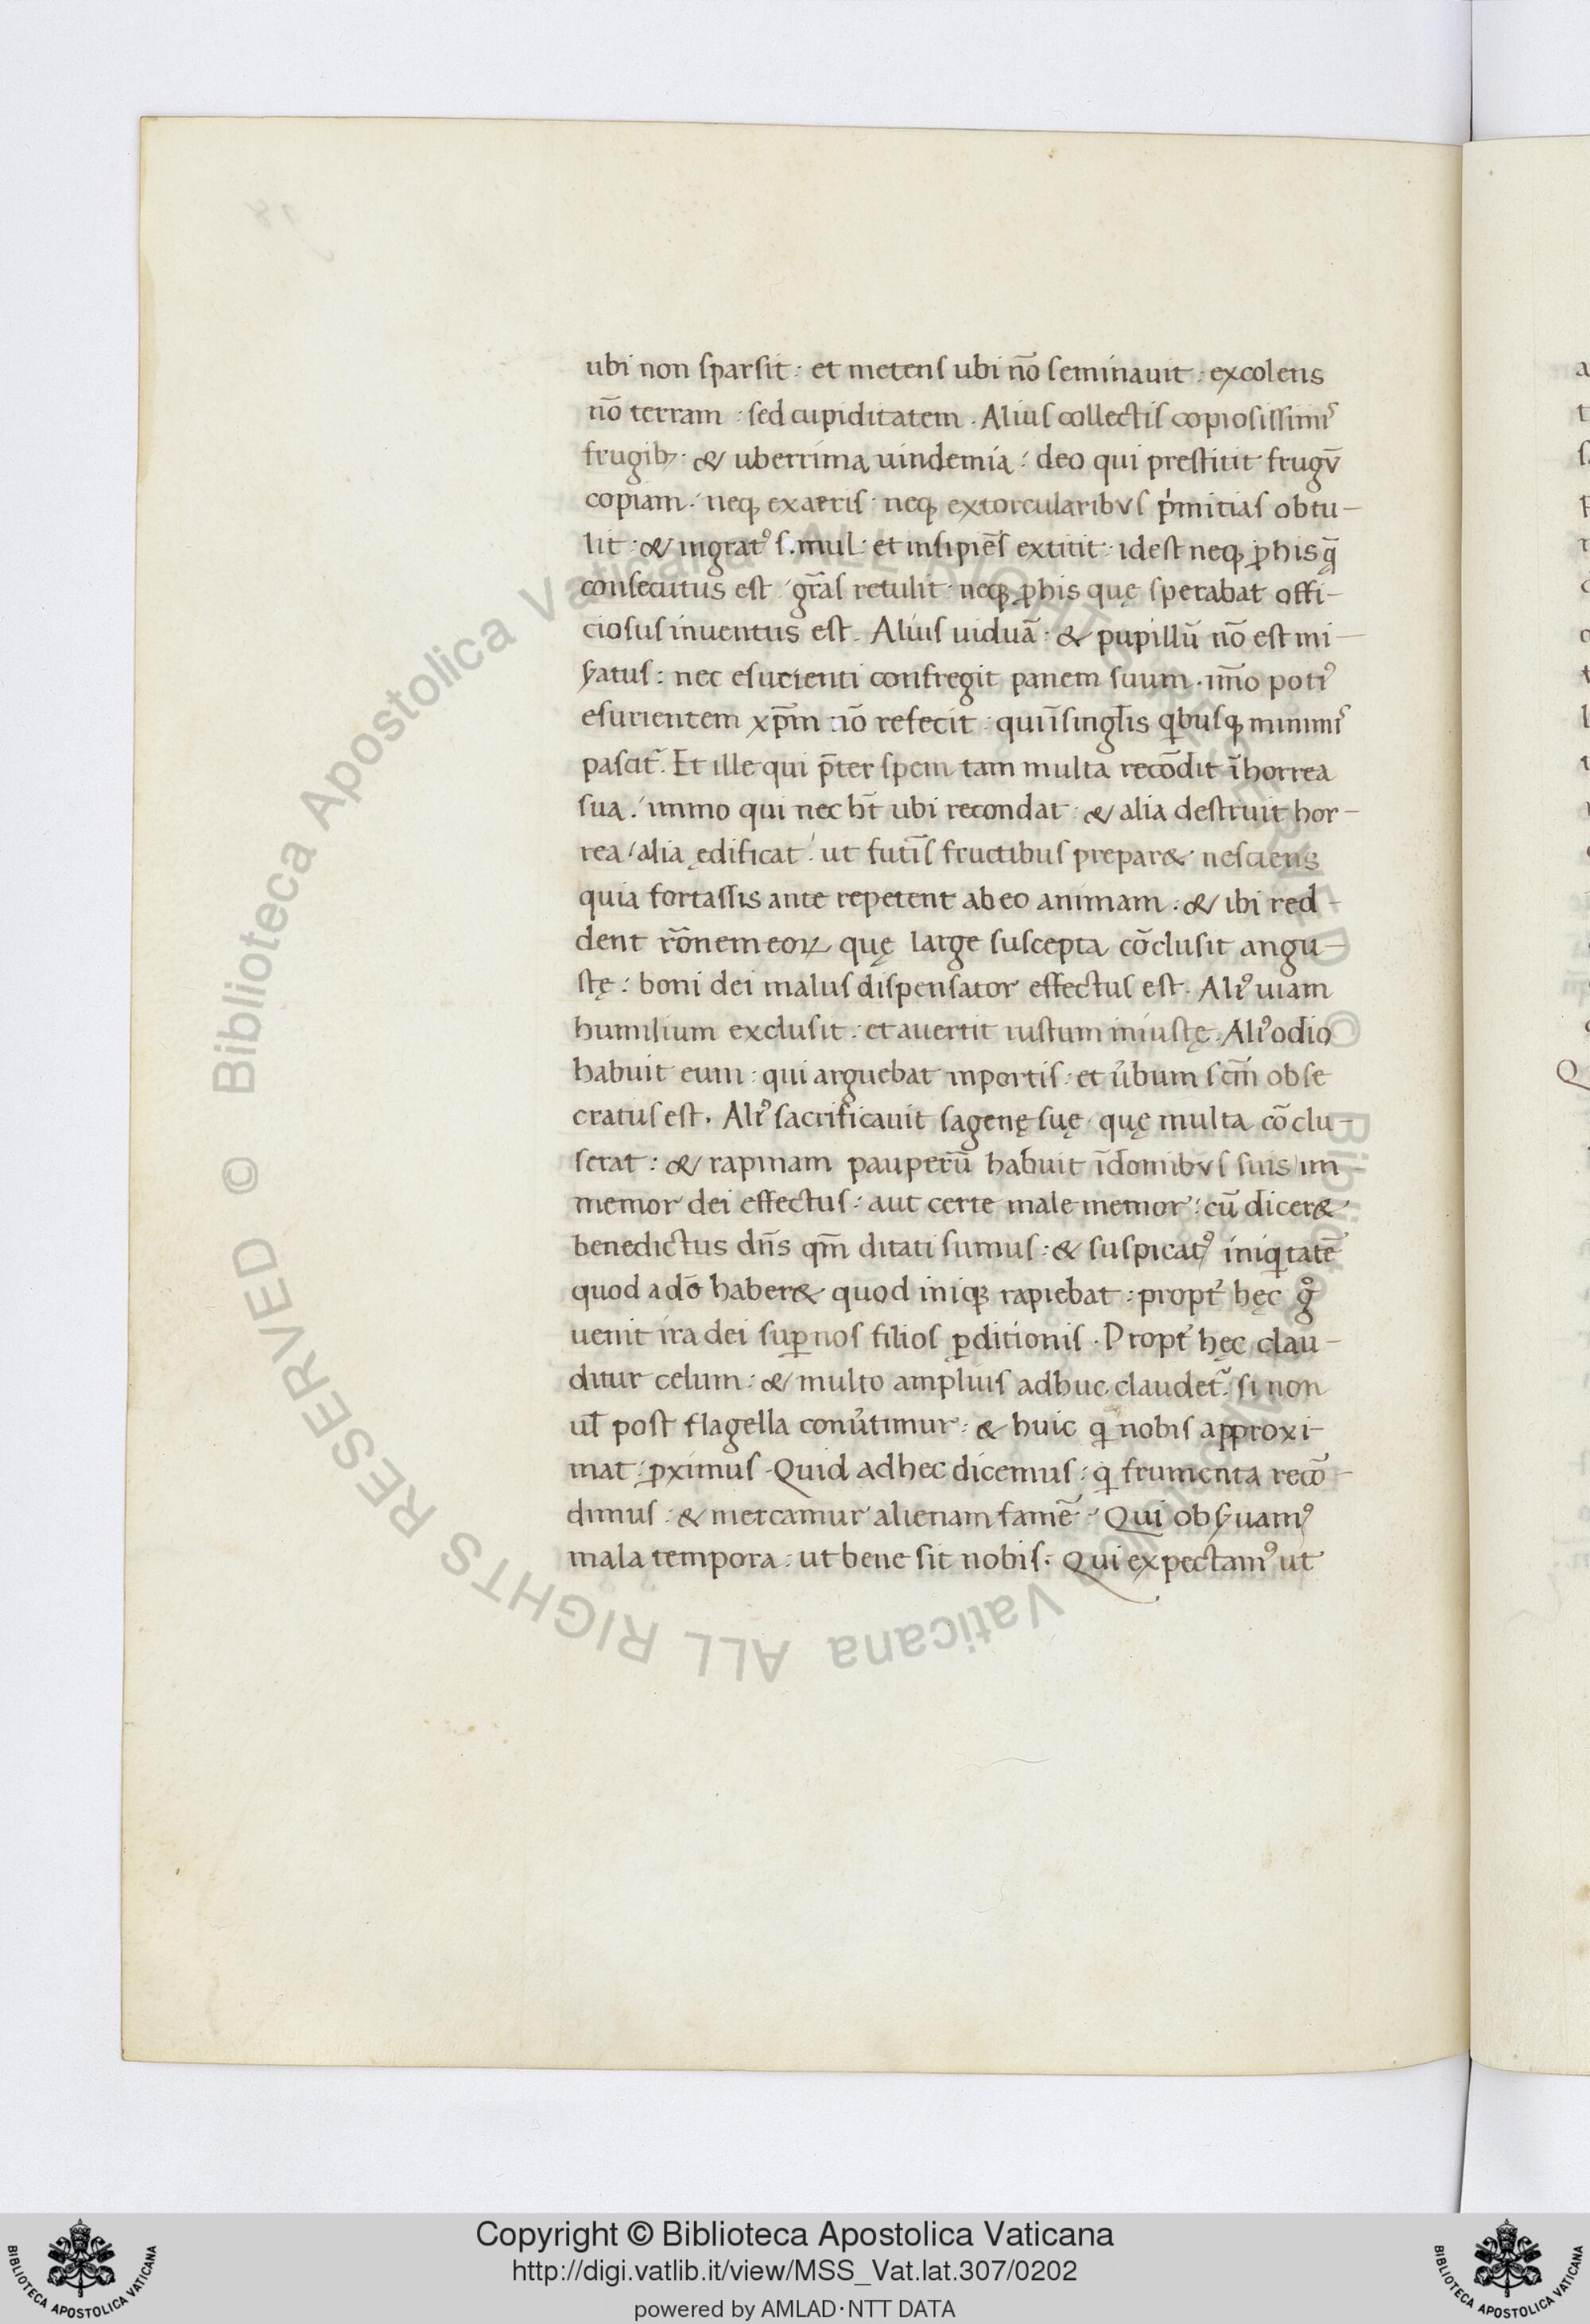 ubi non sparsit : et metens ubi nō seminauit : excolens
nō terram : sed cupiditatem . Alius collectis copiosissimiꝰ
frugibꝫ · & uberrima uindemia : deo qui prestitit frugū
copiam · neqꝫ ex aeris · neqꝫ extorcularibus pͥmitias obtu-
lit : & ingratꝰ s.mul : et insipiēs extitit : idest neqꝫ ꝓhis q̄
consecutus est : gr̄as retulit · neqꝫ ꝓhis quę sperabat offi-
ciosus inuentus est . Alius uiduā : & pupillū nō est mi-
ẜatus : nec esurienti confregit panem suum · im̄o potiꝰ
esurientem xp̄m nō refecit : qui ī singlis qͥbusqꝫ minimis
pascit᷑ . Et ille qui p̄ter spem tam multa recōdit ī horrea
sua : immo qui nec ht̄ ubi recondat : & alia destruit hor-
rea / alia ędificat : ut futīs fructibus prepar& nesciens
quia fortassis ante repetent ab eo animam : & ibi red-
dent rōnem eoꝝ quę large suscepta cōclusit angu-
stę : boni dei malus dispensator effectus est . Aliꝰ uiam
humilium exclusit : et auertit iustum iniustę . Aliꝰ odio
habuit eum : qui arguebat inportis : et u͛bum scm̄ obse
cratus est . Aliꝰ sacrificauit sagenę suę · quę multa cōclu-
serat : & rapinam pauperū habuit ī domibus suis im-
memor dei effectus : aut certe male memor : cū dicer&
benedictus dn̄s qm̄ ditati sumus : & suspicatꝰ iniqͥtatē
quod a dō haber& quod iniqꝫ rapiebat : propt͛ hęc gͦ
uenit ira dei suꝑ nos filios ꝑditionis . Propt͛ hęc clau-
ditur celum : & multo amplius adhuc claudet᷑ : si non
ul̄ post flagella conu͛timur : & huic qͥ nobis approxi-
mat : ꝓximus . Quid ad hec dicemus : qͥ frumenta recō-
dimus : & mercamur alienam famē · Qui obẜuamꝰ
mala tempora : ut bene sit nobis . Qui expectamꝰ ut
Copyright © Biblioteca Apostolica Vaticana
http://digi.vatlib.it/view/MSS_Vat.lat.307/0202
powered by AMLAD·NTT DATA